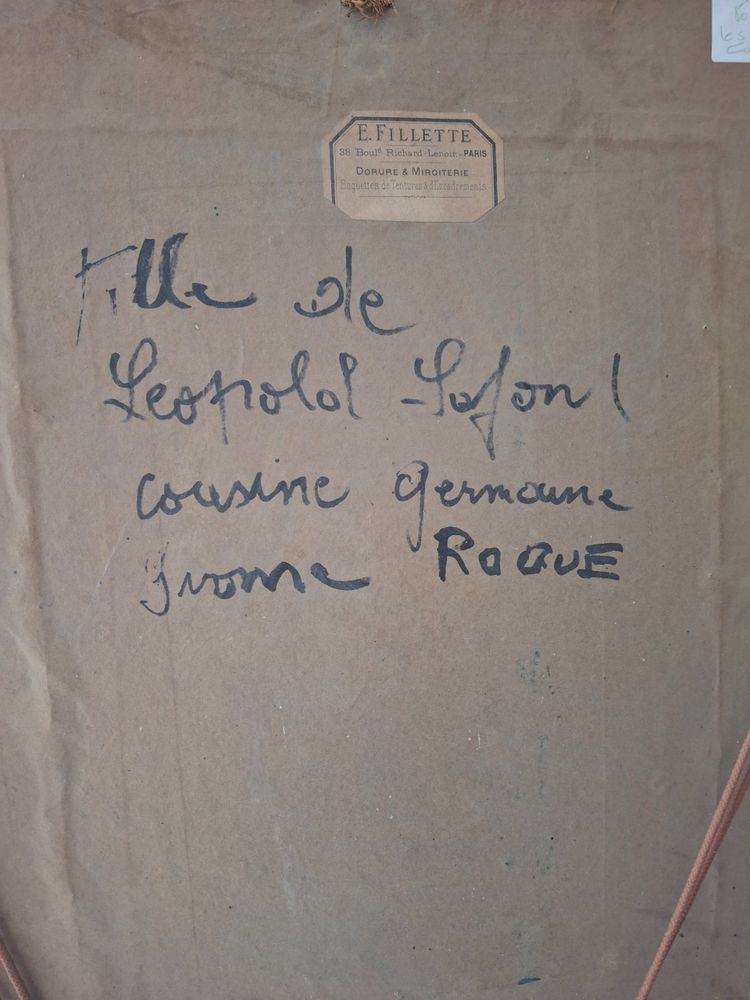 E. FILLETTE
38 Boul.d Richard-Lenoir - PARIS
DORURE & MIROITERIE
Baguettes de Tentures & d'Encadrements
Fille de
Leopold Lafon
cousine germaine
Yvonne ROQUE